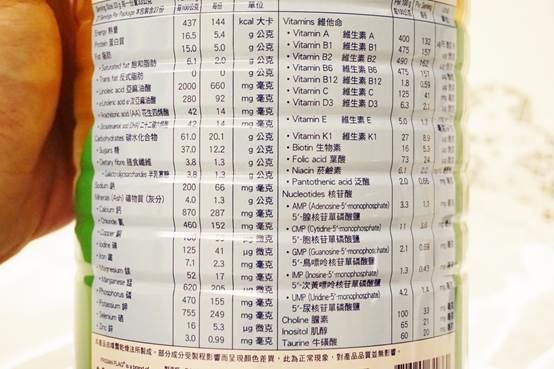 每100公克 每一份量
單位
Energy 熱量 437 144 kcal 大卡
Protein 蛋白質 16.5 5.4 g 公克
Fat 脂肪 15.0 5.0 g 公克
• Saturated fat 飽和脂肪 6.1 2.0 g 公克
• Trans fat 反式脂肪 0 0 g 公克
• Linoleic acid 亞麻油酸 2000 660 mg 毫克
280 92 mg 毫克
• Arachidonic acid (AA) 花生四烯酸 42 14 mg 毫克
42 14 mg 毫克
Carbohydrates 碳水化合物 61.0 20.1 g 公克
• Sugars 糖 37.0 12.2 g 公克
• Dietary fibre 膳食纖維 3.8 1.3 g 公克
• Galactooligosaccharides 半乳寡糖 3.8 1.3 g 公克
Sodium 鈉 200 66 mg 毫克
Minerals (Ash) 礦物質 (灰分) 4.0 1.3 g 公克
• Calcium 鈣 870 287 mg 毫克
• Chloride 氯 460 152 mg 毫克
• Copper 銅 μg 微克
• Iodine 碘 125 41 μg 微克
• Iron 鐵 7.1 2.3 mg 毫克
• Magnesium 鎂 52 17 mg 毫克
• Manganese 錳 620 205 μg 微克
• Phosphorus 磷 470 155 mg 毫克
• Potassium 鉀 755 249 mg 毫克
• Selenium 硒 16 5.3 μg 微克
• Zinc 鋅 3.0 0.99 mg 毫克
Per 100 g
Vitamins 維他命
• Vitamin A 維生素 A 400 132
• Vitamin B1 維生素 B1 475 157
• Vitamin B2 維生素 B2 490 162
• Vitamin B6 維生素 B6 475 157
• Vitamin B12 維生素 B12 1.8 0.59
• Vitamin C 維生素 C 125 41
• Vitamin D3 維生素 D3 6.3 2.1
• Vitamin E 維生素 E 5.0
• Vitamin K1 維生素 K1 27 8.9
• Biotin 生物素 16 5.3
• Folic acid 葉酸 73 24
• Niacin 菸鹼素
• Pantothenic acid 泛酸 2.0 0.66
Nucleotides 核苷酸
• AMP (Adenosine-5'-monophosphate) 3.3 1.1
5'-腺核苷單磷酸鹽
• CMP (Cytidine-5'-monophosphate)
5'-胞核苷單磷酸鹽
• GMP (Guanosine-5'-monophosphate) 2.1 0.69
5'-鳥嘌呤核苷單磷酸鹽
• IMP (Inosine-5'-monophosphate) 1.3 0.43
5'-次黃嘌呤核苷單磷酸鹽
• UMP (Uridine-5'-monophosphate) 4.2 1.4
5'-尿核苷單磷酸鹽
Choline 膽素 100 33
Inositol 肌醇 65 21
Taurine 牛磺酸 60 20
本產品由噴霧乾燥法所製成，部分成分受製程影響而呈現顏色差異，此為正常現象，對產品品質並無影響。